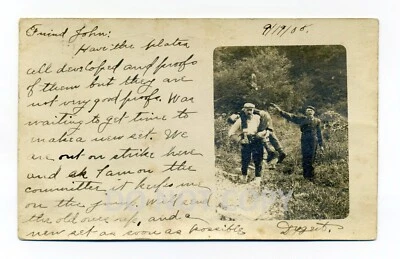 Friend John:
9/19/05.
Have the plates
all developed and proofs
of them but they are
not very good proofs. Was
waiting to get time to
make a new set. We
are out on strike here
and as I am on the
committee, it keeps me
on the jump. Will send
the old ones up, and a
new set as soon as possible